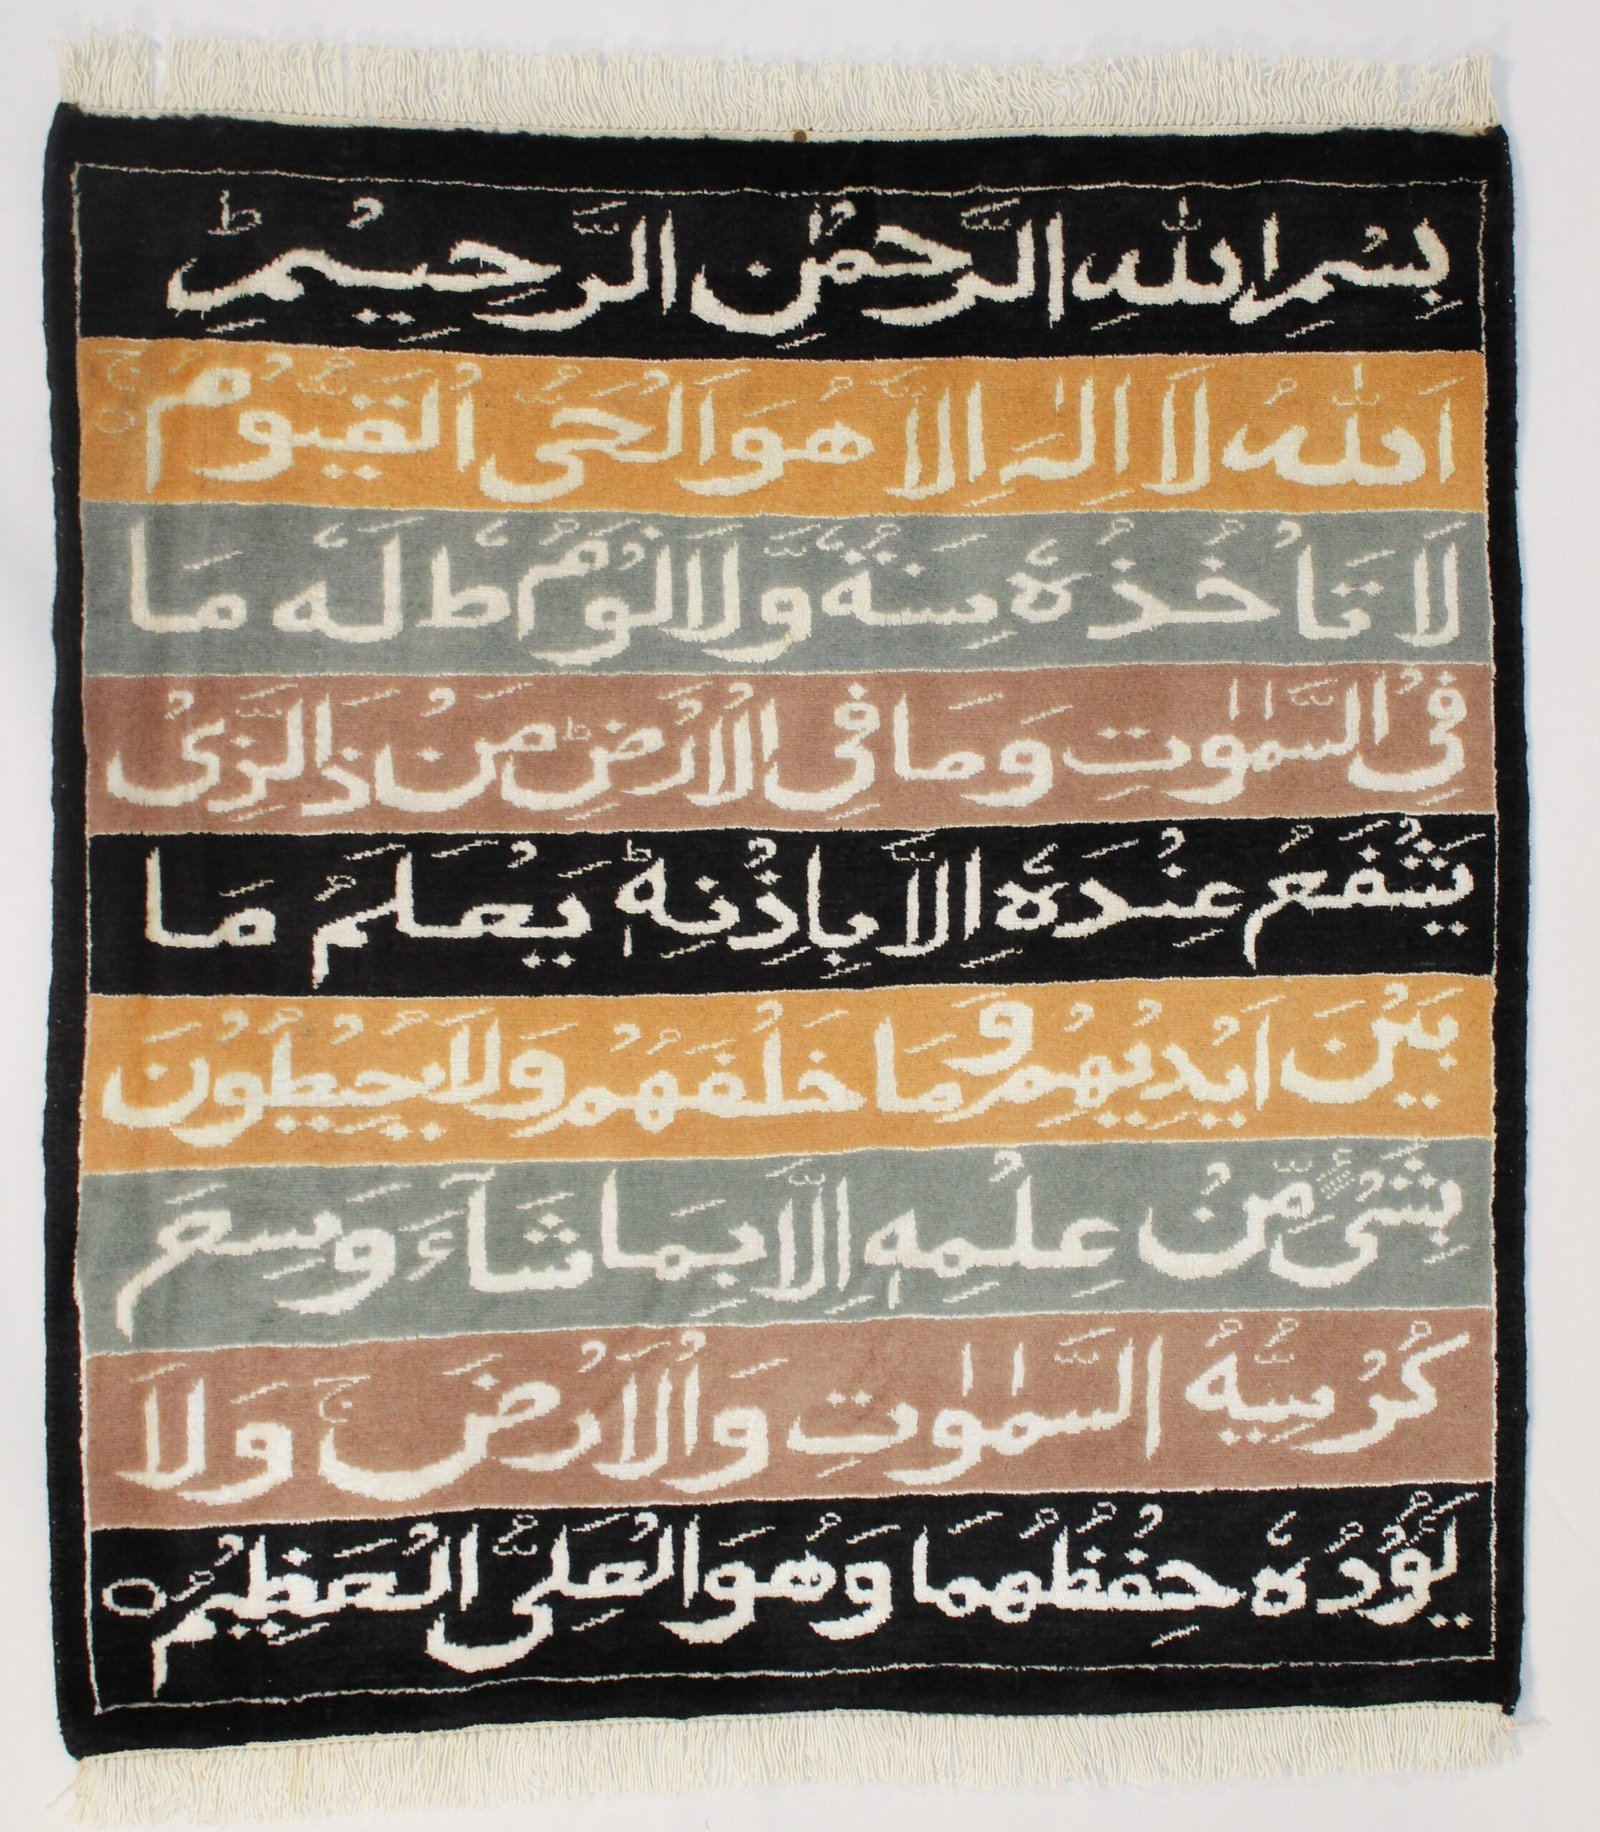 بِسْمِ اللّٰهِ الرَّحْمٰنِ الرَّحِيْمِ ط
اَللّٰهُ لَا اِلٰهَ اِلَّا هُوَ الْحَیُّ الْقَيُّوْمُ ج
لَا تَاْخُذُهٗ سِنَةٌ وَّلَا نَوْمٌ ط لَهٗ مَا
فِی السَّمٰوٰتِ وَمَا فِی الْاَرْضِ ط مَنْ ذَا الَّزِیْ
يَشْفَعُ عِنْدَهٗ اِلَّا بِاِذْنِهٖ ط يَعْلَمُ مَا
بَيْنَ اَيْدِيْهِمْ وَمَا خَلْفَهُمْ وَلَا يُحِيْطُوْنَ
بِشَیْءٍ مِّنْ عِلْمِهٖ اِلَّا بِمَا شَآءَ وَسِعَ
كُرْسِيُّهُ السَّمٰوٰتِ وَالْاَرْضَ ج وَلَا
يَؤُدُهٗ حِفْظُهُمَا وَهُوَ الْعَلِیُّ الْعَظِيْمُ ○